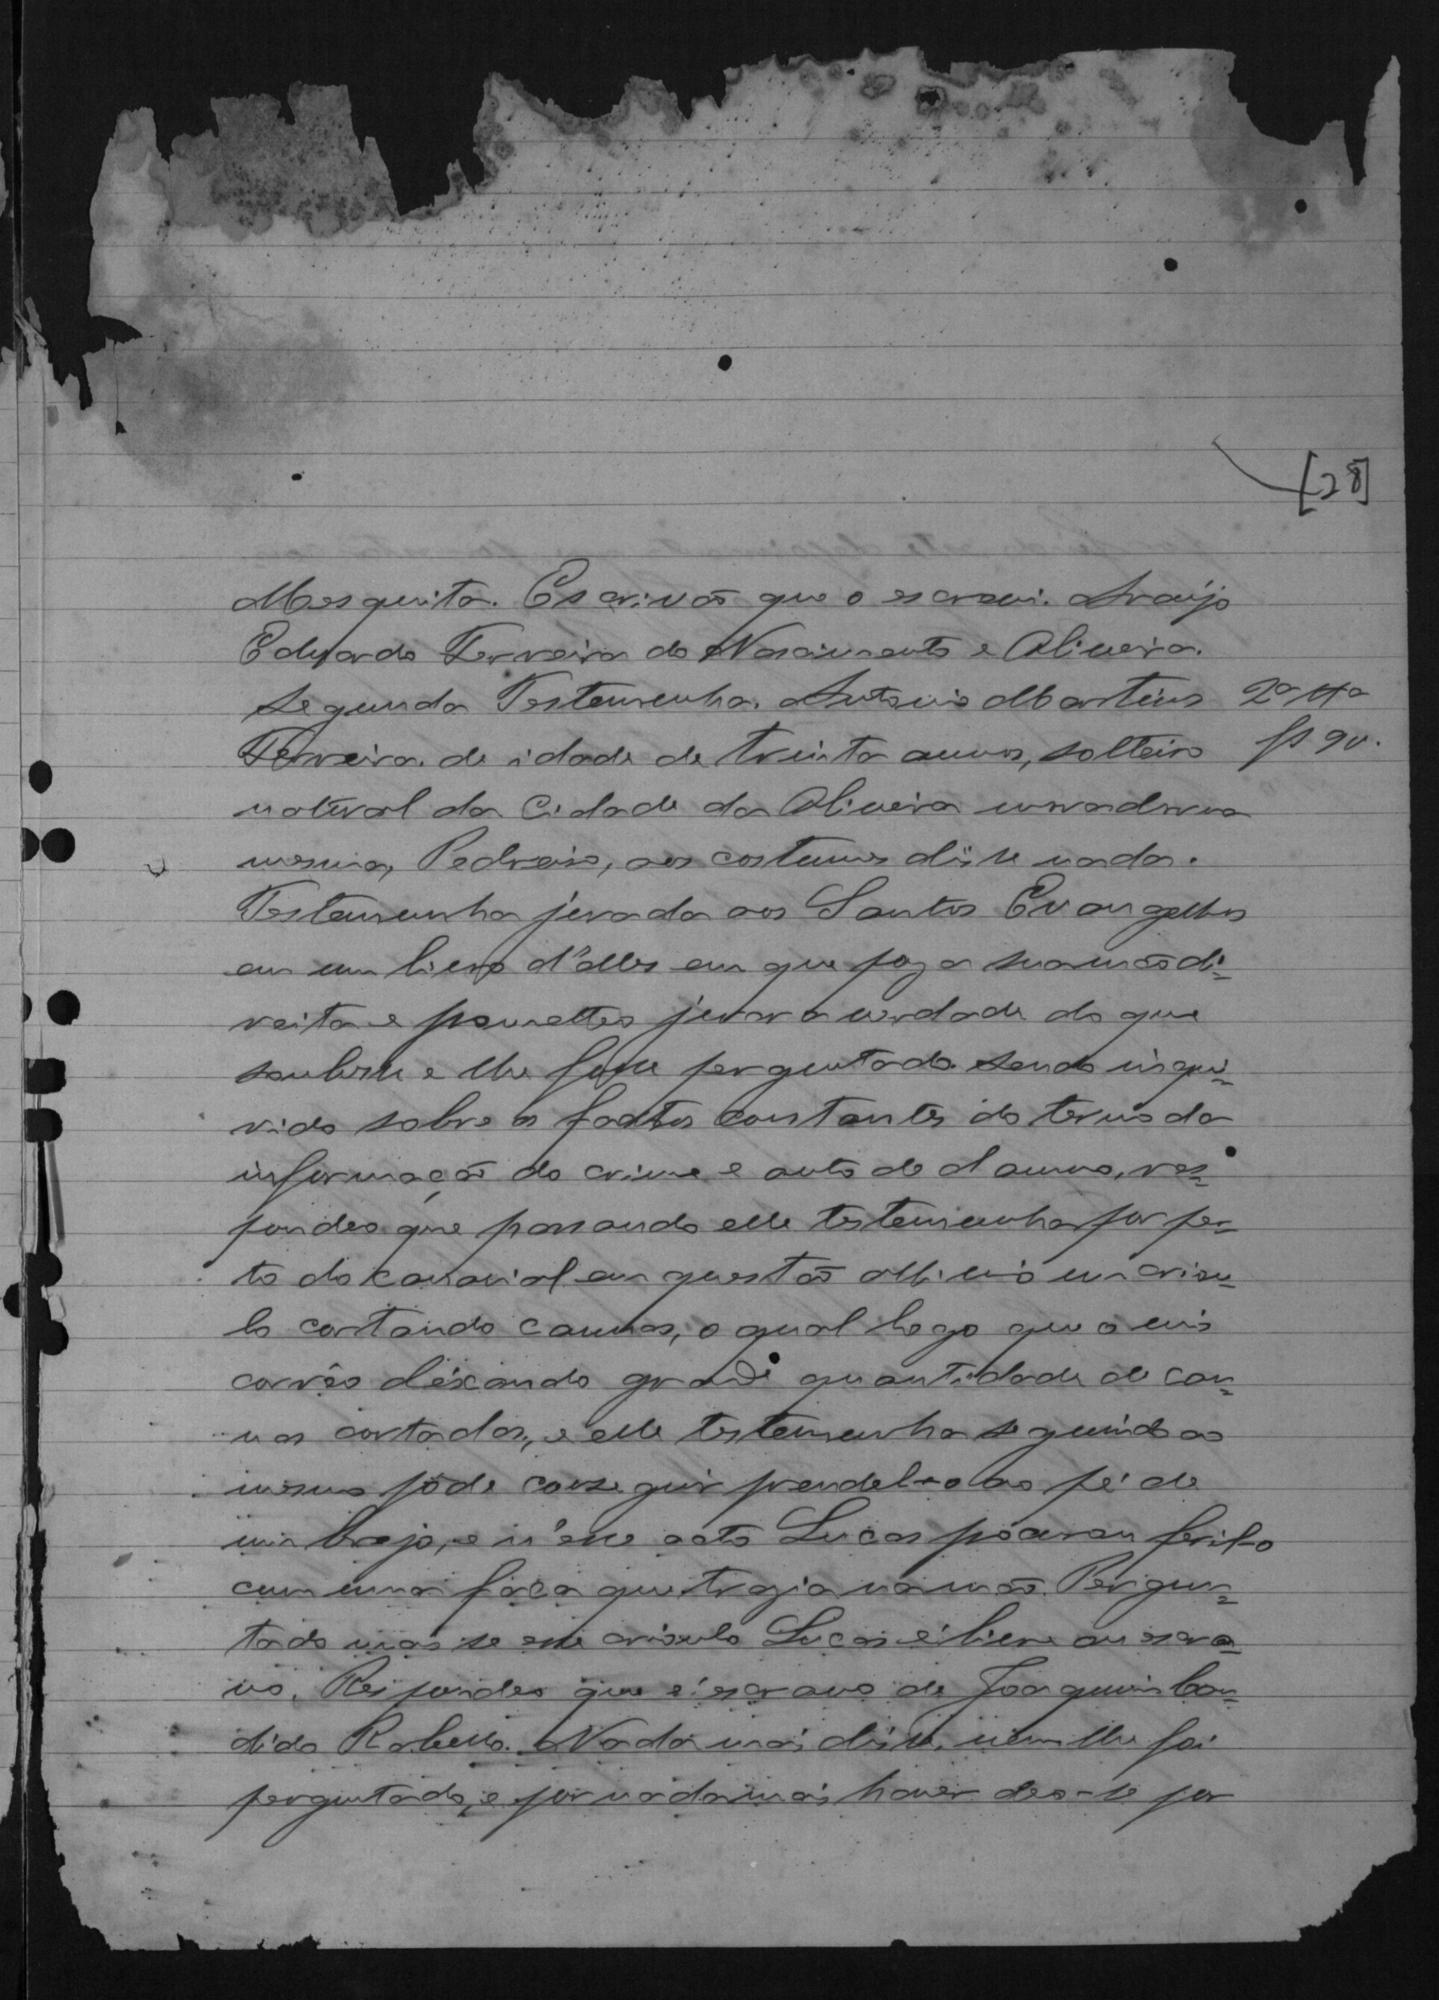 [28]
Mesquita. Escrivão que o escrevi. Araújo
Eduardo Ferreira do Nascimento e Oliveira.
Segunda Testemunha. Antonio Martins 2ª Ttª
Ferreira. de idade de trinta annos, solteiro fs 9v.
natural da Cidade da Oliveira morador na
mesma, Pedreiro, aos costumes disse nada.
Testemunha jurada aos Santos Evangelhos
em um livro d'elles em que poz a sua mão di=
reita e prometteo jurar a verdade do que
soubesse e lhe fosse perguntado. Sendo inqui=
rido sobre os factos constantes do termo da
informação do crime e auto de damno, res=
pondeo que passando elle testemunha por per=
to do canavial em questão alli vio um criou=
lo cortando cannas, o qual logo que o vio
corrêo deixando grande quantidade de can=
nas cortadas, e elle testemunha seguindo ao
mesmo pôde conseguir prendel-o ao pé de
um brejo, e n'esse acto Lucas procurou feril-o
com uma faca que trazia na mão. Pergun=
tado mais se esse crioulo Lucas é livre ou escra=
vo. Respondeo que é escravo de Joaquim Can=
dido Rabello. Nada mais disse, nem lhe foi
perguntado, e por nada mais haver deo-se por